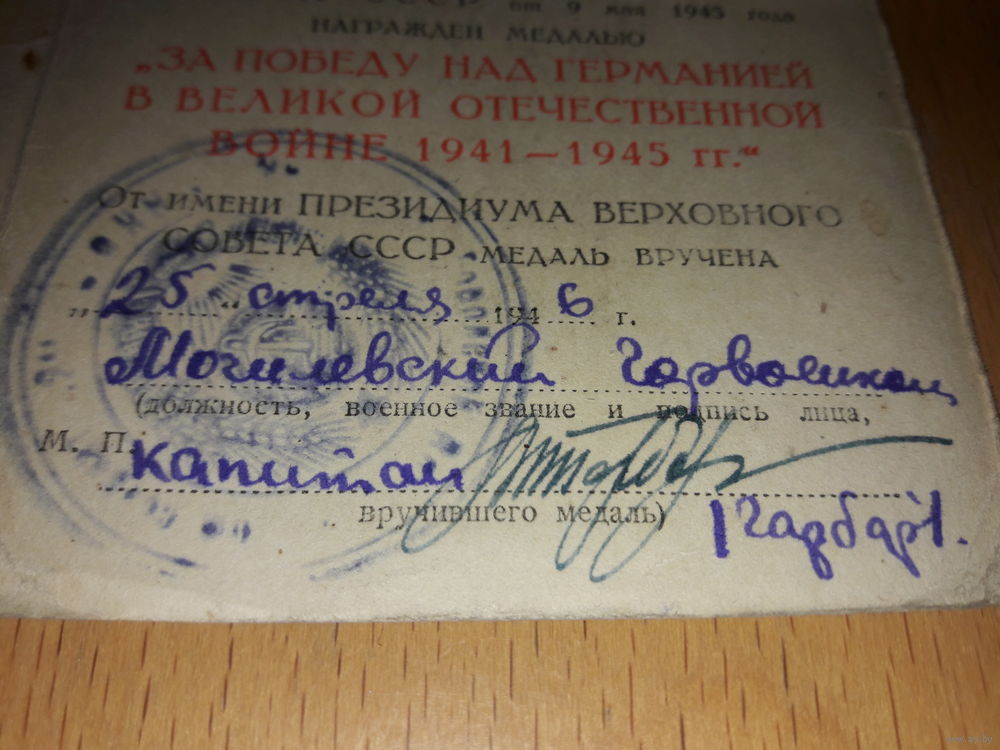 СССР от 9 мая 1945 года
НАГРАЖДЕН МЕДАЛЬЮ
„ЗА ПОБЕДУ НАД ГЕРМАНИЕЙ
В ВЕЛИКОЙ ОТЕЧЕСТВЕННОЙ
ВОЙНЕ 1941—1945 гг.“
От имени ПРЕЗИДИУМА ВЕРХОВНОГО
СОВЕТА СССР МЕДАЛЬ ВРУЧЕНА
„25“ апреля 1946 г.
Могилевский Горвоенком
(должность, военное звание и подпись лица,
М. П. капитан
вручившего медаль) /Гарбар/.